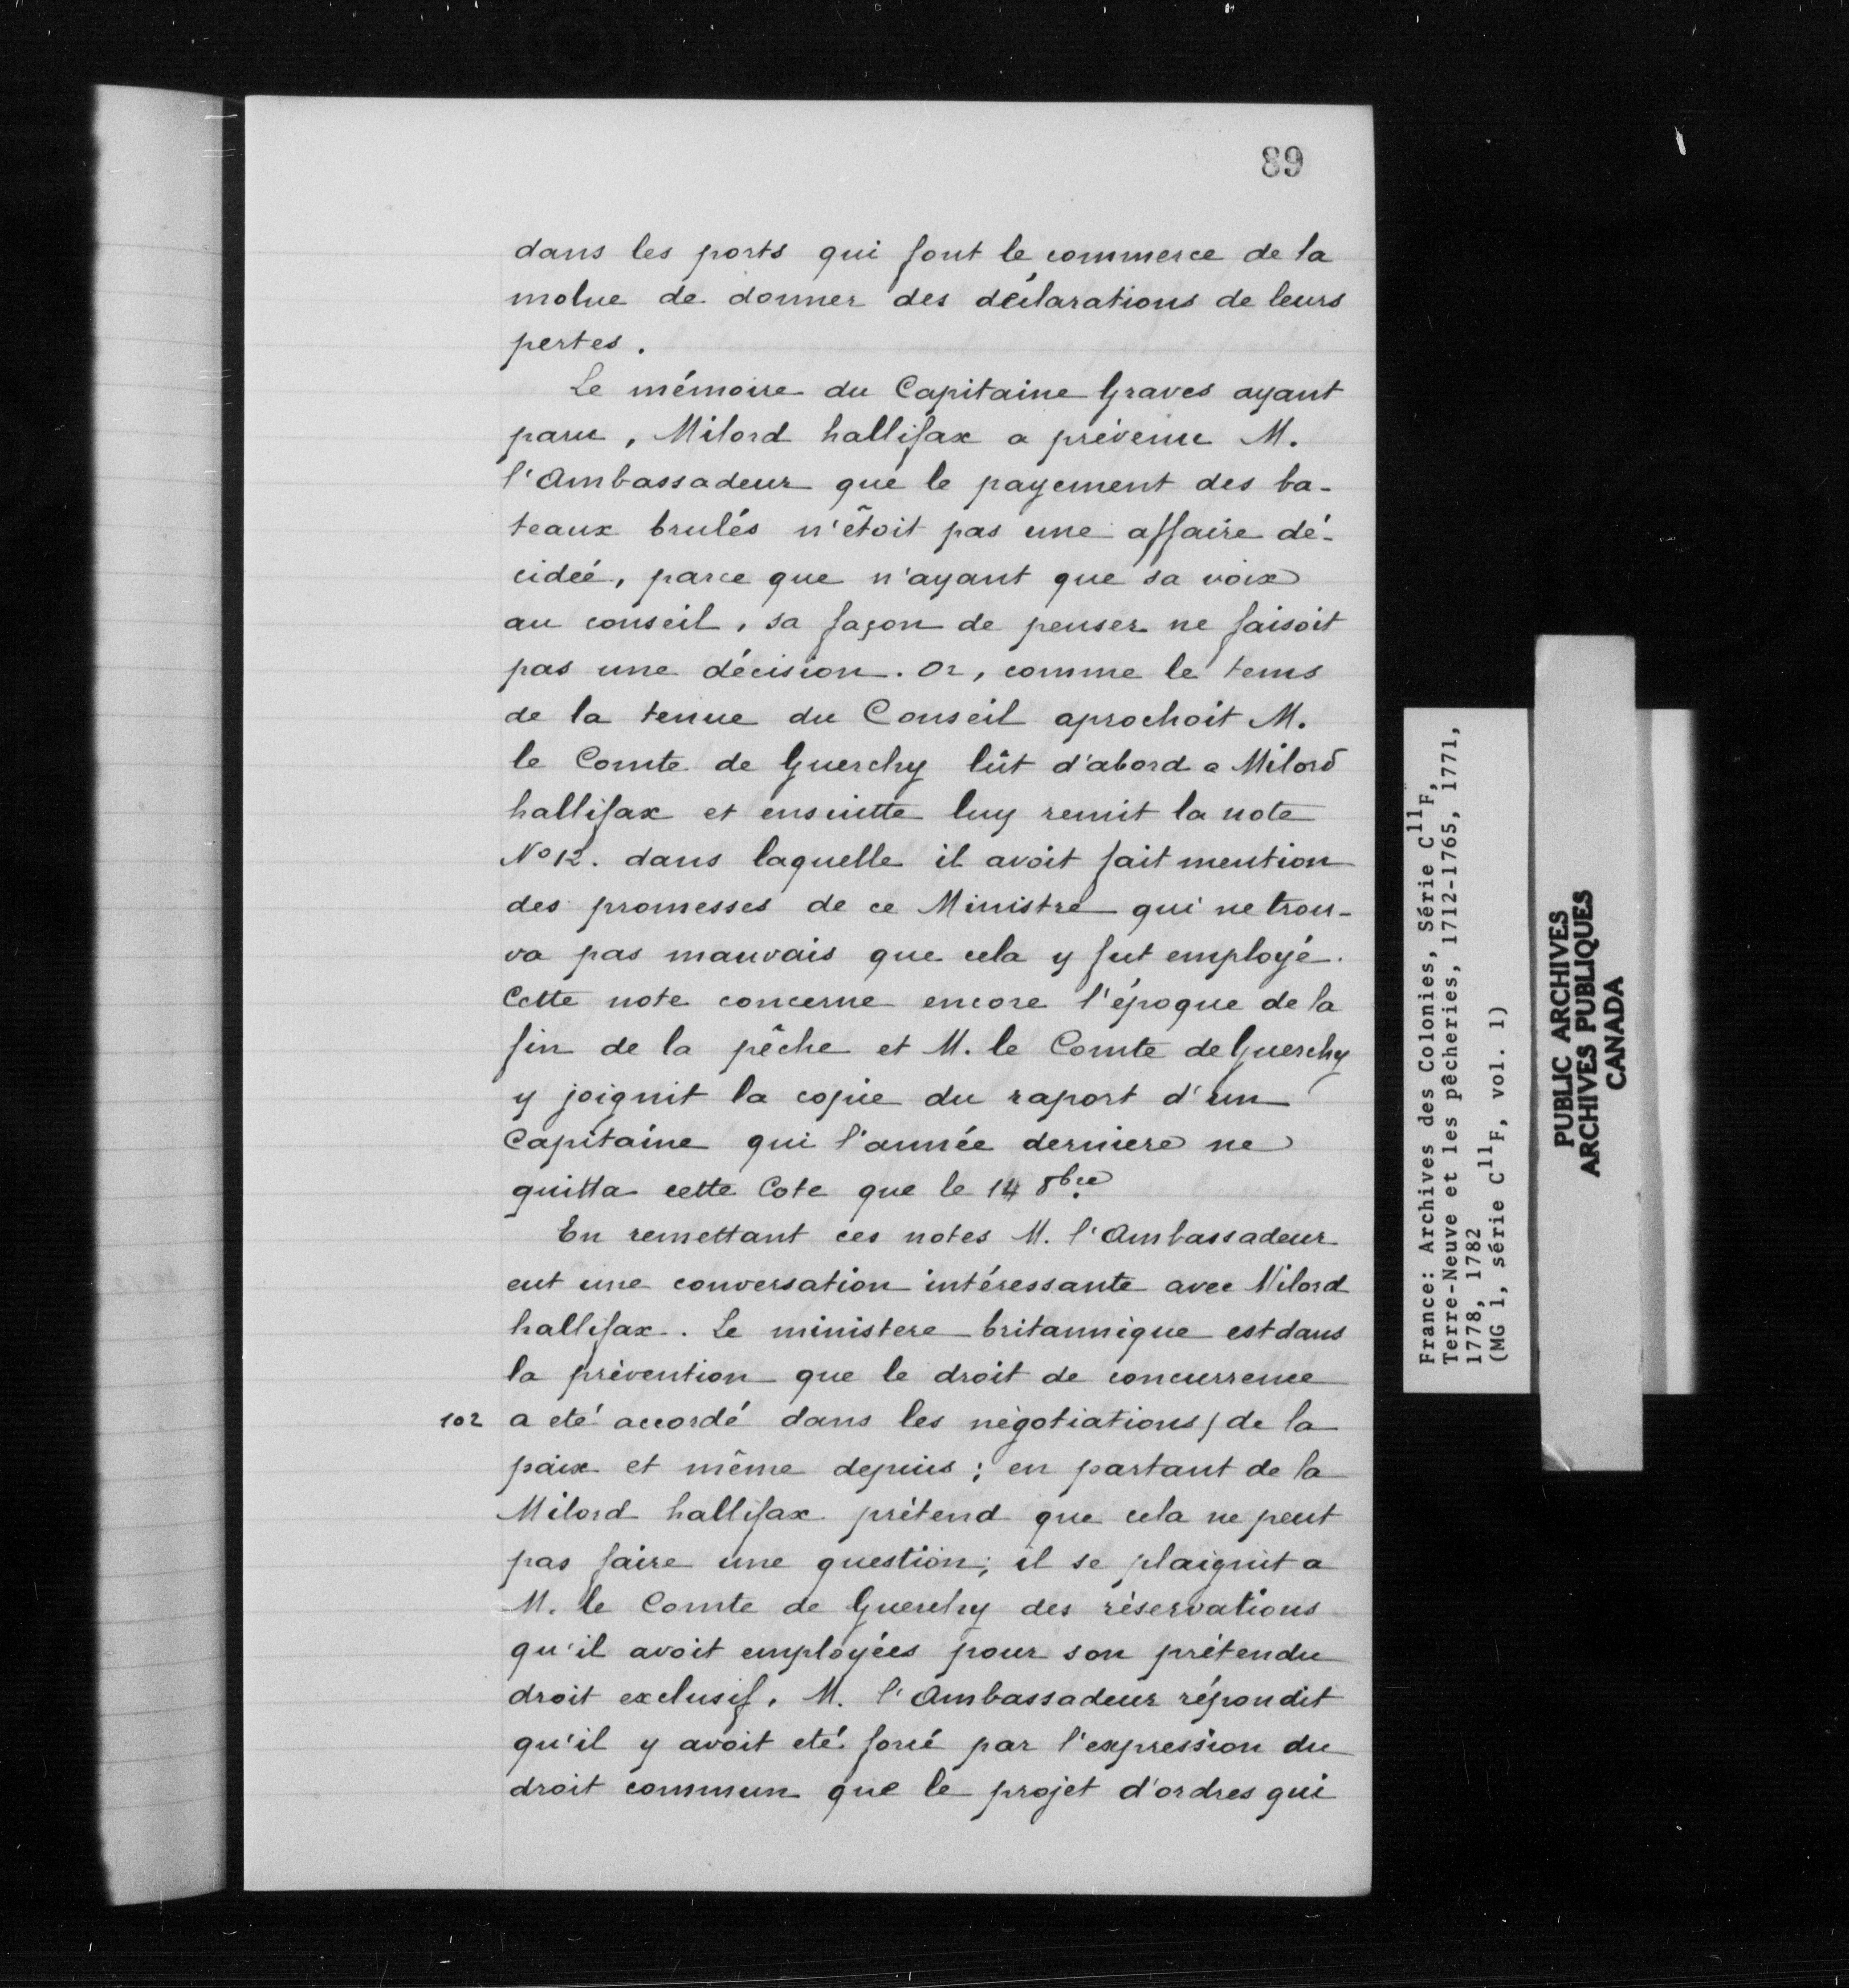 89
dans les ports qui font le commerce de la
molue de donner des déclarations de leurs
pertes.
Le mémoire du Capitaine Graves ayant
paru, Milord hallifax a prévenu M.
l'Ambassadeur que le payement des ba-
teaux brulés n'étoit pas une affaire dé-
cidée, parce que n'ayant que sa voix
au conseil, sa façon de penser ne faisoit
pas une décision. Or, comme le tems
de la tenue du Conseil aprochoit M.
le Comte de Guerchy lût d'abord a Milord
hallifax et ensuitte luy remit la note
No 12. dans laquelle il avoit fait mention
des promesses de ce Ministre qui ne trou-
va pas mauvais que cela y fut employé.
Cette note concerne encore l'époque de la
fin de la pêche et M. le Comte de Guerchy
y joignit la copie du raport d'un
Capitaine qui l'année derniere ne
quitta cette Cote que le 14 8bre
En remettant ces notes M. l'Ambassadeur
eut une conversation intéressante avec Milord
hallifax. Le ministere britannique est dans
la prévention que le droit de concurrence
102 a eté accordé dans les négotiations / de la
paix et même depuis; en partant de la
Milord hallifax prétend que cela ne peut
pas faire une question; il se plaignit a
M. le Comte de Guerchy des réservations
qu'il avoit employées pour son prétendu
droit exclusif. M. l'Ambassadeur répondit
qu'il y avoit eté forcé par l'expression du
droit commun que le projet d'ordres qui
France: Archives des Colonies, Série C11F,
Terre-Neuve et les pêcheries, 1712-1765, 1771,
1778, 1782
(MG 1, série C11F, vol. 1)
PUBLIC ARCHIVES
ARCHIVES PUBLIQUES
CANADA